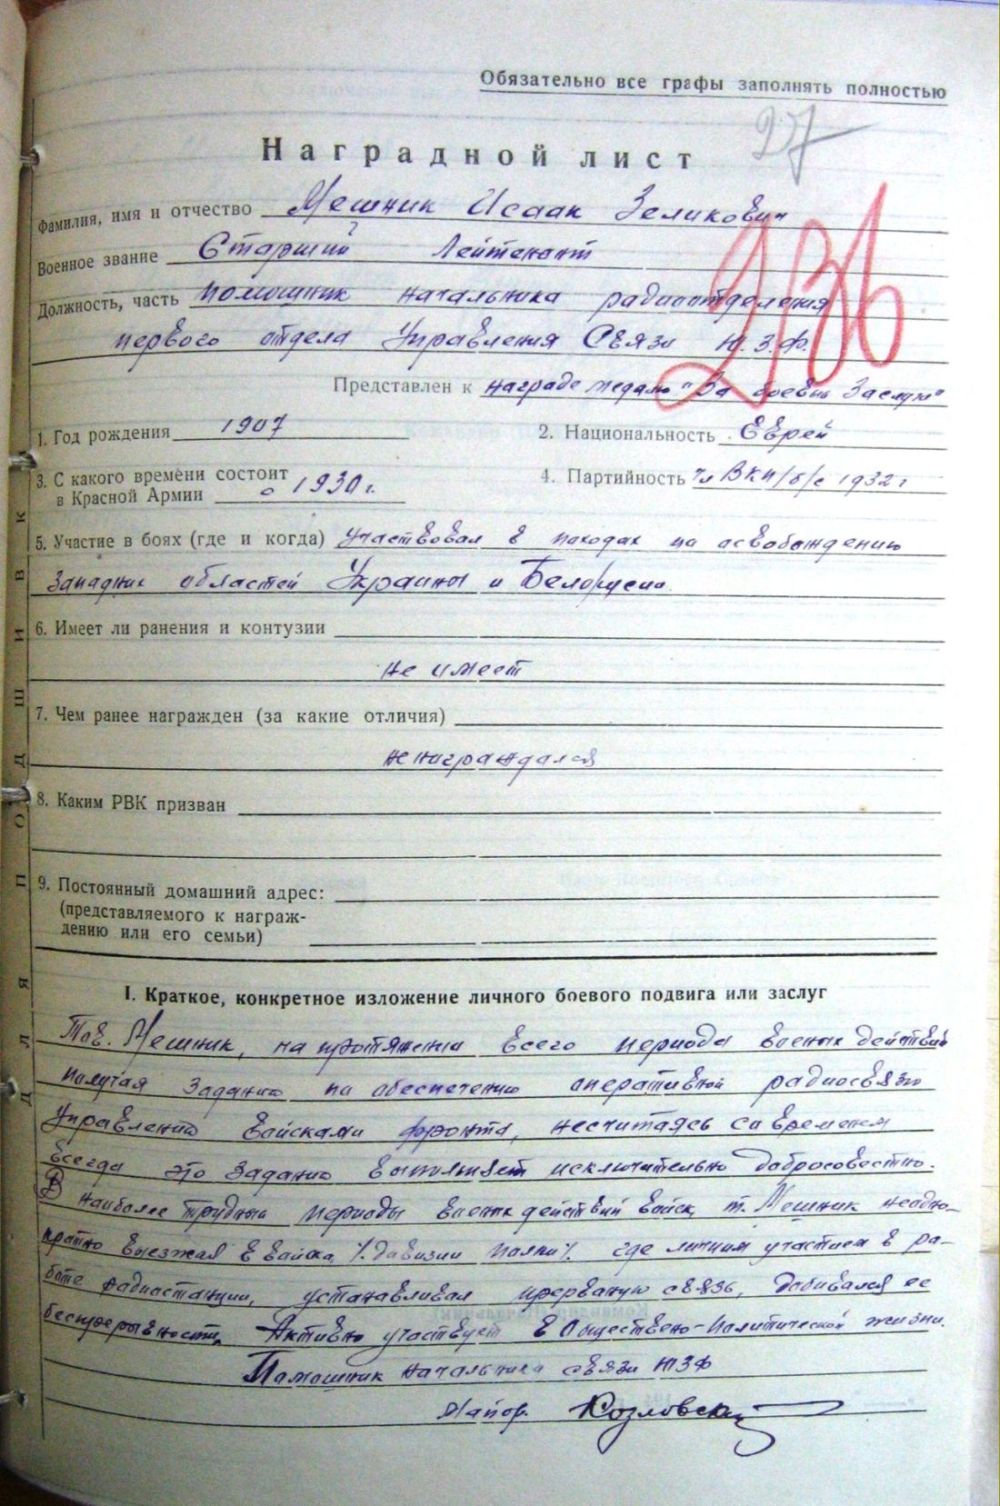 Обязательно все графы заполнять полностью
27
Наградной лист
236
Фамилия, имя и отчество Мешник Исаак Зеликович
Военное звание Старший Лейтенант
Должность, часть помошник начальника радиоотделения
первого отдела Управления Связи Ю.З.Ф.
Представлен к награде медалью "За боевые Заслуги"
1. Год рождения 1907
2. Национальность Еврей
3. С какого времени состоит
в Красной Армии с 1930 г.
4. Партийность чл ВКП/б/с 1932 г
5. Участие в боях (где и когда) Участвовал в походах по освобождению
Западних областей Украины и Белорусии.
6. Имеет ли ранения и контузии
не имеет
7. Чем ранее награжден (за какие отличия)
ненаграждался
8. Каким РВК призван
9. Постоянный домашний адрес:
(представляемого к награж-
дению или его семьи)
ДЛЯ ПОДШИВК
I. Краткое, конкретное изложение личного боевого подвига или заслуг
Тов. Мешник, на протяжении всего периода военых действий
получая задания по обеспечению оперативной радиосвязю
Управлению войсками фронта, несчитаясь со временем
всегда это задание выполняет исключительно добросовестно.
В наиболее трудные периоды военых действий войск, т. Мешник неодно-
кратно выезжал в войска /дивизии полки/ где личним участием в ра-
боте радиостанции, устанавливал прерваную связь, добивался ее
бесперерывности. Активно участвует в Обществено-политической жизни.
Памошник начальника связи ЮЗФ
Майор. Козловский